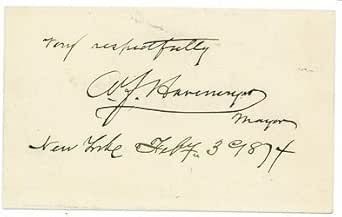 Very respectfully
W. F. Havemeyer
Mayor
New York Feby. 3d 1874